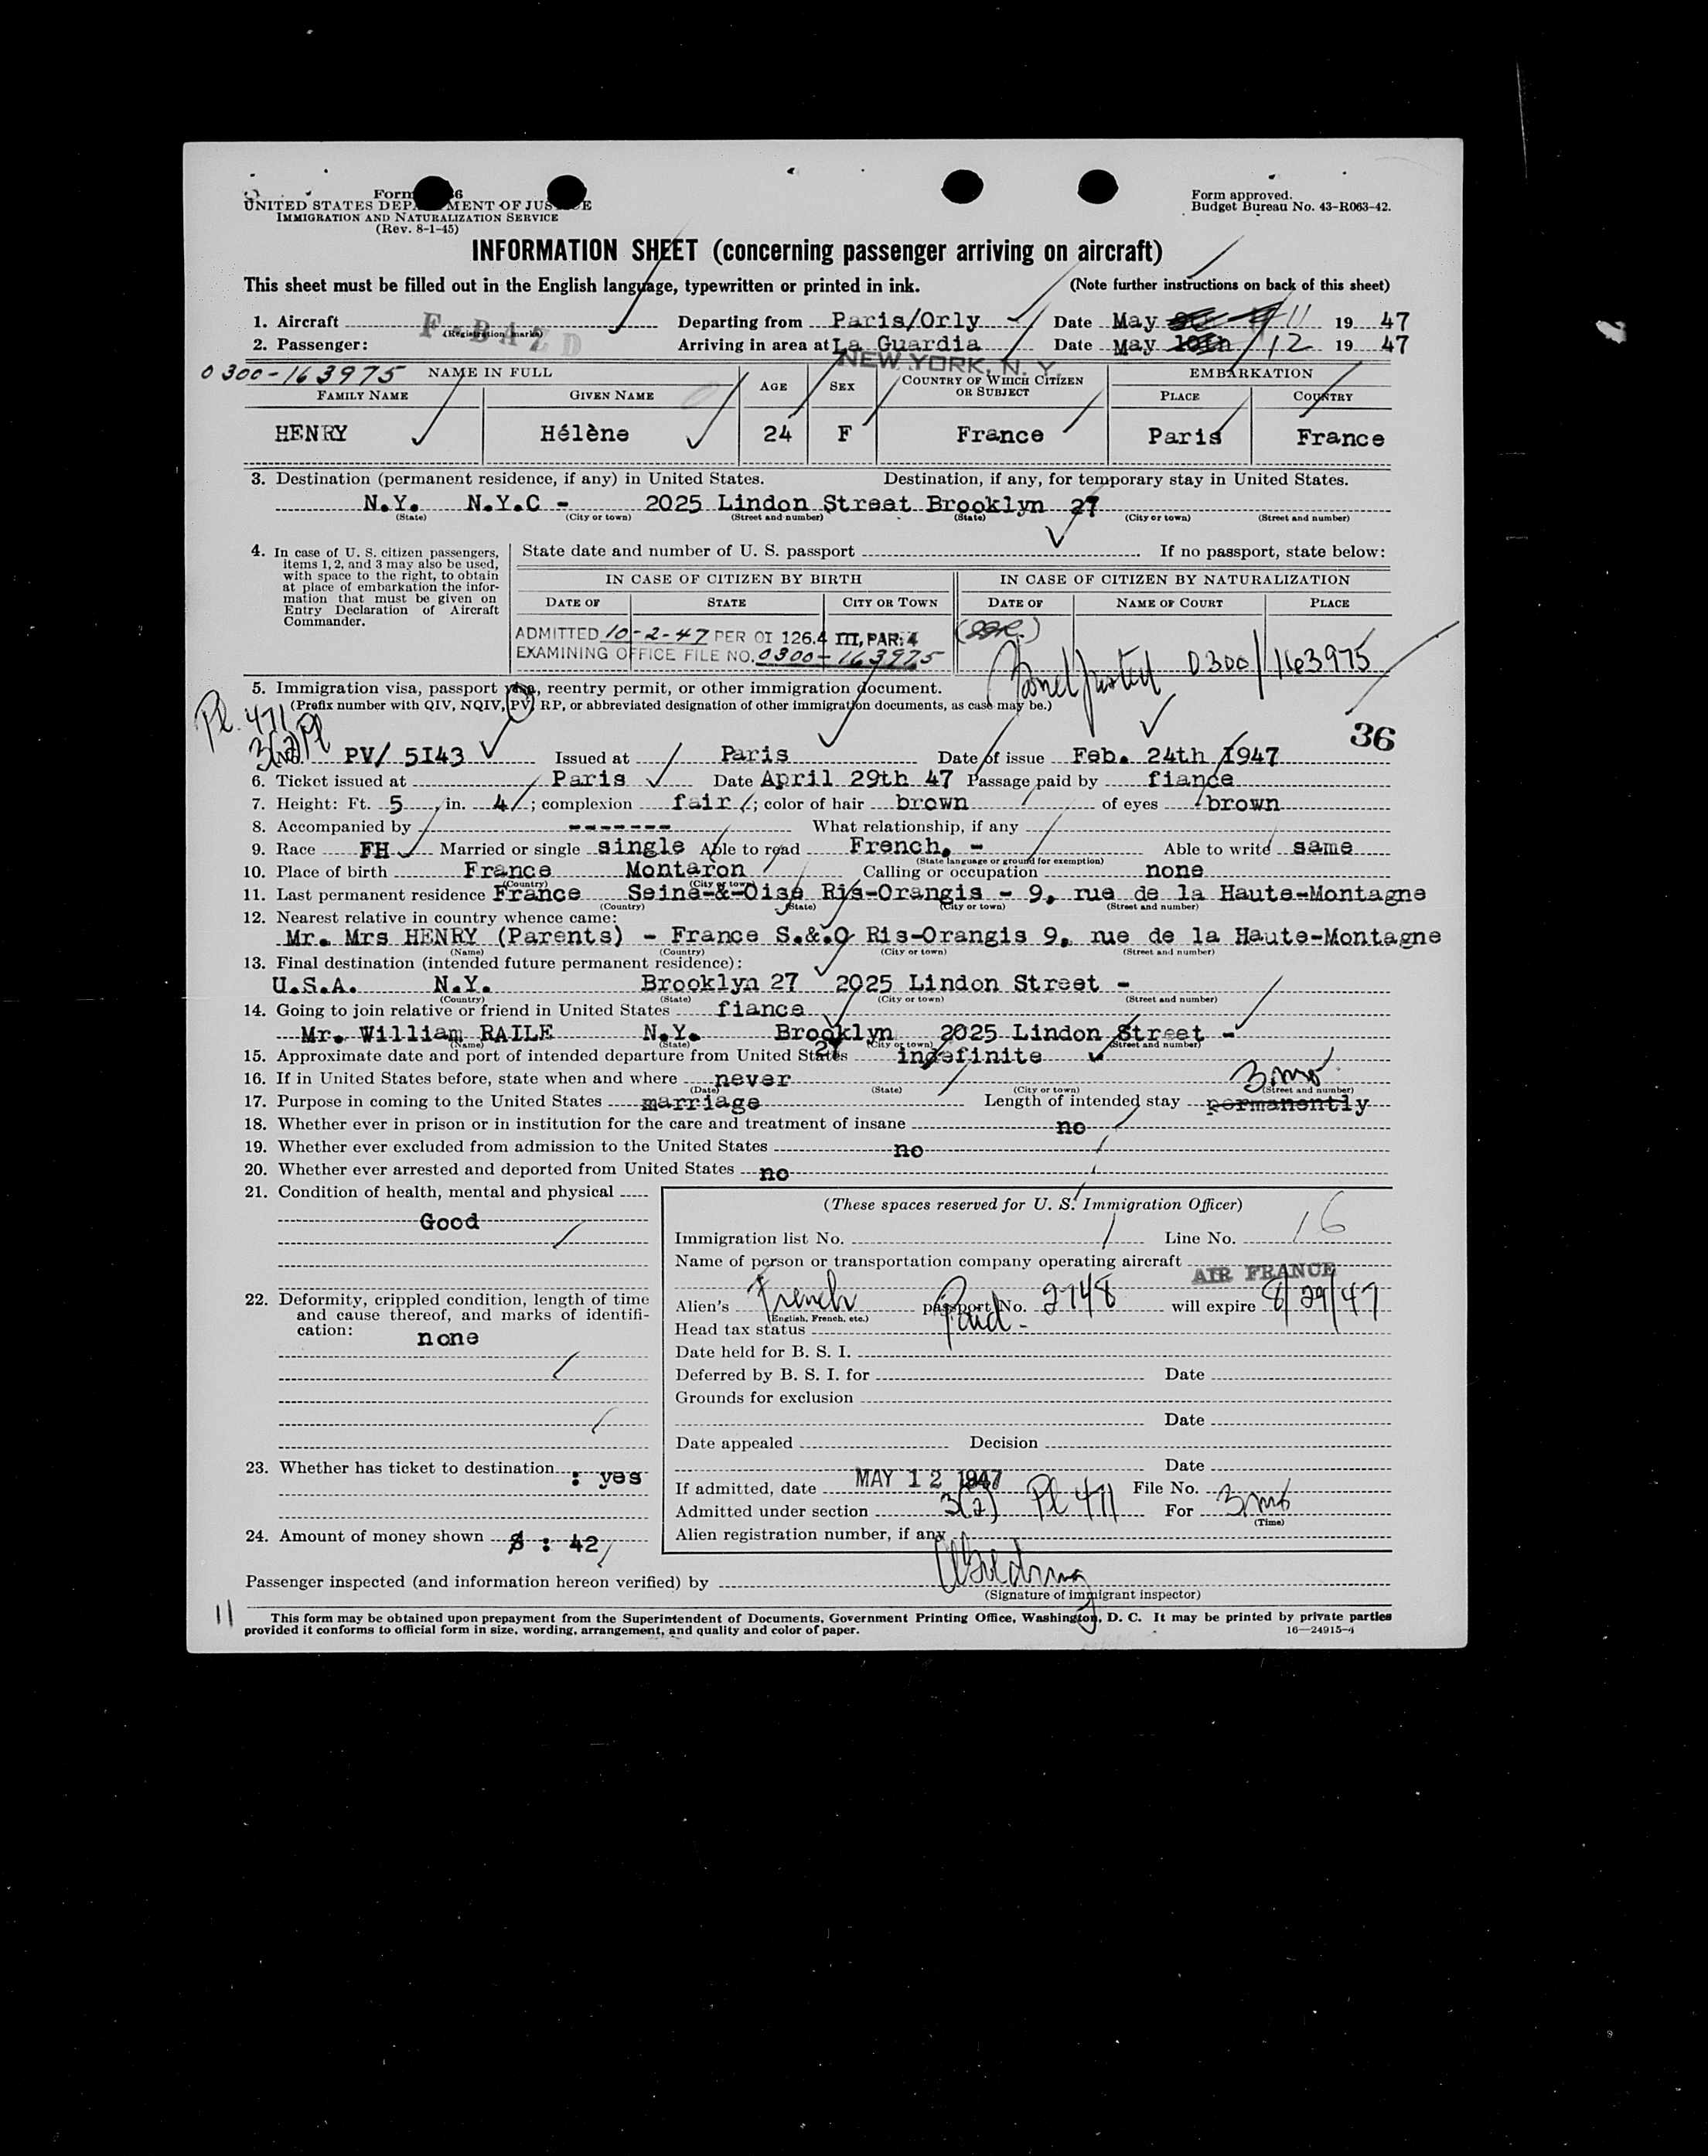 Form
UNITED STATES DEPARTMENT OF JUSTICE
IMMIGRATION AND NATURALIZATION SERVICE
(Rev. 8-1-45)
Form approved.
Budget Bureau No. 43-R063-42.
INFORMATION SHEET (concerning passenger arriving on aircraft)
This sheet must be filled out in the English language, typewritten or printed in ink. (Note further instructions on back of this sheet)
1. Aircraft F-BAZD (Registration marks) Departing from Paris/Orly Date May 11 19 47
2. Passenger: Arriving in area at La Guardia Date May 10th 12 19 47
NEW YORK, N. Y.
0300-163975 NAME IN FULL AGE SEX COUNTRY OF WHICH CITIZEN OR SUBJECT EMBARKATION
FAMILY NAME GIVEN NAME PLACE COUNTRY
HENRY Hélène 24 F France Paris France
3. Destination (permanent residence, if any) in United States. Destination, if any, for temporary stay in United States.
N.Y. N.Y.C - 2025 Lindon Street Brooklyn 27
(State) (City or town) (Street and number) (State) (City or town) (Street and number)
4. In case of U. S. citizen passengers, items 1, 2, and 3 may also be used, with space to the right, to obtain at place of embarkation the information that must be given on Entry Declaration of Aircraft Commander.
State date and number of U. S. passport If no passport, state below:
IN CASE OF CITIZEN BY BIRTH IN CASE OF CITIZEN BY NATURALIZATION
DATE OF STATE CITY OR TOWN DATE OF NAME OF COURT PLACE
ADMITTED 10-2-47 PER OI 126.4 III, PAR: 4
EXAMINING OFFICE FILE NO. 0300-163975
Bond posted 0300/163975
5. Immigration visa, passport visa, reentry permit, or other immigration document.
(Prefix number with QIV, NQIV, PV, RP, or abbreviated designation of other immigration documents, as case may be.)
Pl. 471
3(2) Pl
36
No. PV/ 5I43 Issued at Paris Date of issue Feb. 24th 1947
6. Ticket issued at Paris Date April 29th 47 Passage paid by fiance
7. Height: Ft. 5 in. 4 ; complexion fair ; color of hair brown of eyes brown
8. Accompanied by ------- What relationship, if any
9. Race FH Married or single single Able to read French, - Able to write same
(State language or ground for exemption)
10. Place of birth France Montaron Calling or occupation none
(Country) (City or town)
11. Last permanent residence France Seine-&-Oise Ris-Orangis - 9, rue de la Haute-Montagne
(Country) (State) (City or town) (Street and number)
12. Nearest relative in country whence came:
Mr. Mrs HENRY (Parents) - France S.&.O Ris-Orangis 9, rue de la Haute-Montagne
(Name) (Country) (City or town) (Street and number)
13. Final destination (intended future permanent residence):
U.S.A. N.Y. Brooklyn 27 2025 Lindon Street -
(Country) (State) (City or town) (Street and number)
14. Going to join relative or friend in United States fiance
Mr. William RAILE N.Y. Brooklyn 27 2025 Lindon Street -
(Name) (State) (City or town) (Street and number)
15. Approximate date and port of intended departure from United States indefinite
16. If in United States before, state when and where never
(Date) (State) (City or town) (Street and number)
3 mo
17. Purpose in coming to the United States marriage Length of intended stay permanently
18. Whether ever in prison or in institution for the care and treatment of insane no
19. Whether ever excluded from admission to the United States no
20. Whether ever arrested and deported from United States no
21. Condition of health, mental and physical
Good
22. Deformity, crippled condition, length of time and cause thereof, and marks of identification:
none
23. Whether has ticket to destination : yes
24. Amount of money shown $ : 42
(These spaces reserved for U. S. Immigration Officer)
Immigration list No. Line No. 16
Name of person or transportation company operating aircraft
AIR FRANCE
Alien's French passport No. 2748 will expire 8/29/47
(English, French, etc.)
Head tax status Paid -
Date held for B. S. I.
Deferred by B. S. I. for Date
Grounds for exclusion
Date
Date appealed Decision
Date
If admitted, date MAY 12 1947 File No.
Admitted under section 3(2) Pl 471 For 3 mos
(Time)
Alien registration number, if any
Passenger inspected (and information hereon verified) by
(Signature of immigrant inspector)
11
This form may be obtained upon prepayment from the Superintendent of Documents, Government Printing Office, Washington, D. C. It may be printed by private parties
provided it conforms to official form in size, wording, arrangement, and quality and color of paper. 16—24915-4